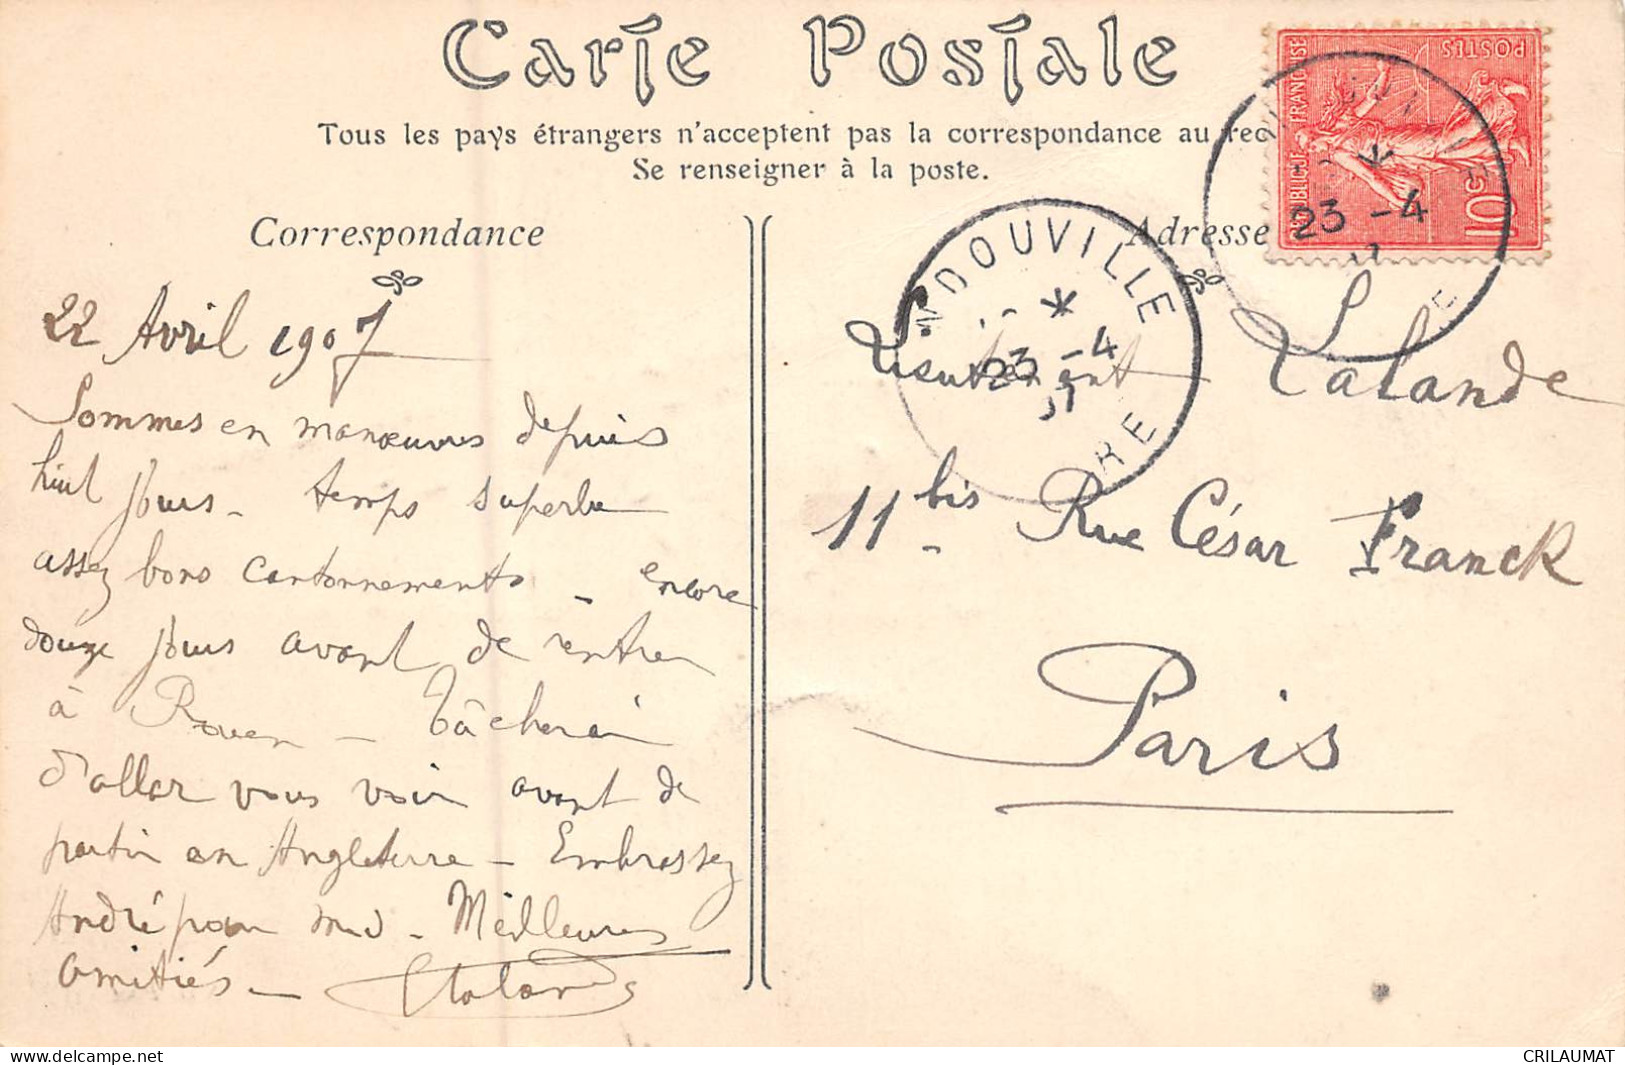 Carte Postale
Tous les pays étrangers n'acceptent pas la correspondance au rec
Se renseigner à la poste.
Correspondance
22 Avril 1907
Sommes en manœuvres depuis
huit jours - temps superbe
assez bons cantonnements - encore
douze jours avant de rentrer
à Rouen - Tâcherai
d'aller vous voir avant de
partir en Angleterre - Embrassez
André pour moi - Meilleures
amitiés -
Adresse
Lieutenant Lalande
11 bis Rue César Franck
Paris
RÉPUBLIQUE FRANÇAISE
POSTES
10c
23 -4
DOUVILLE
23 -4
RE
CRILAUMAT